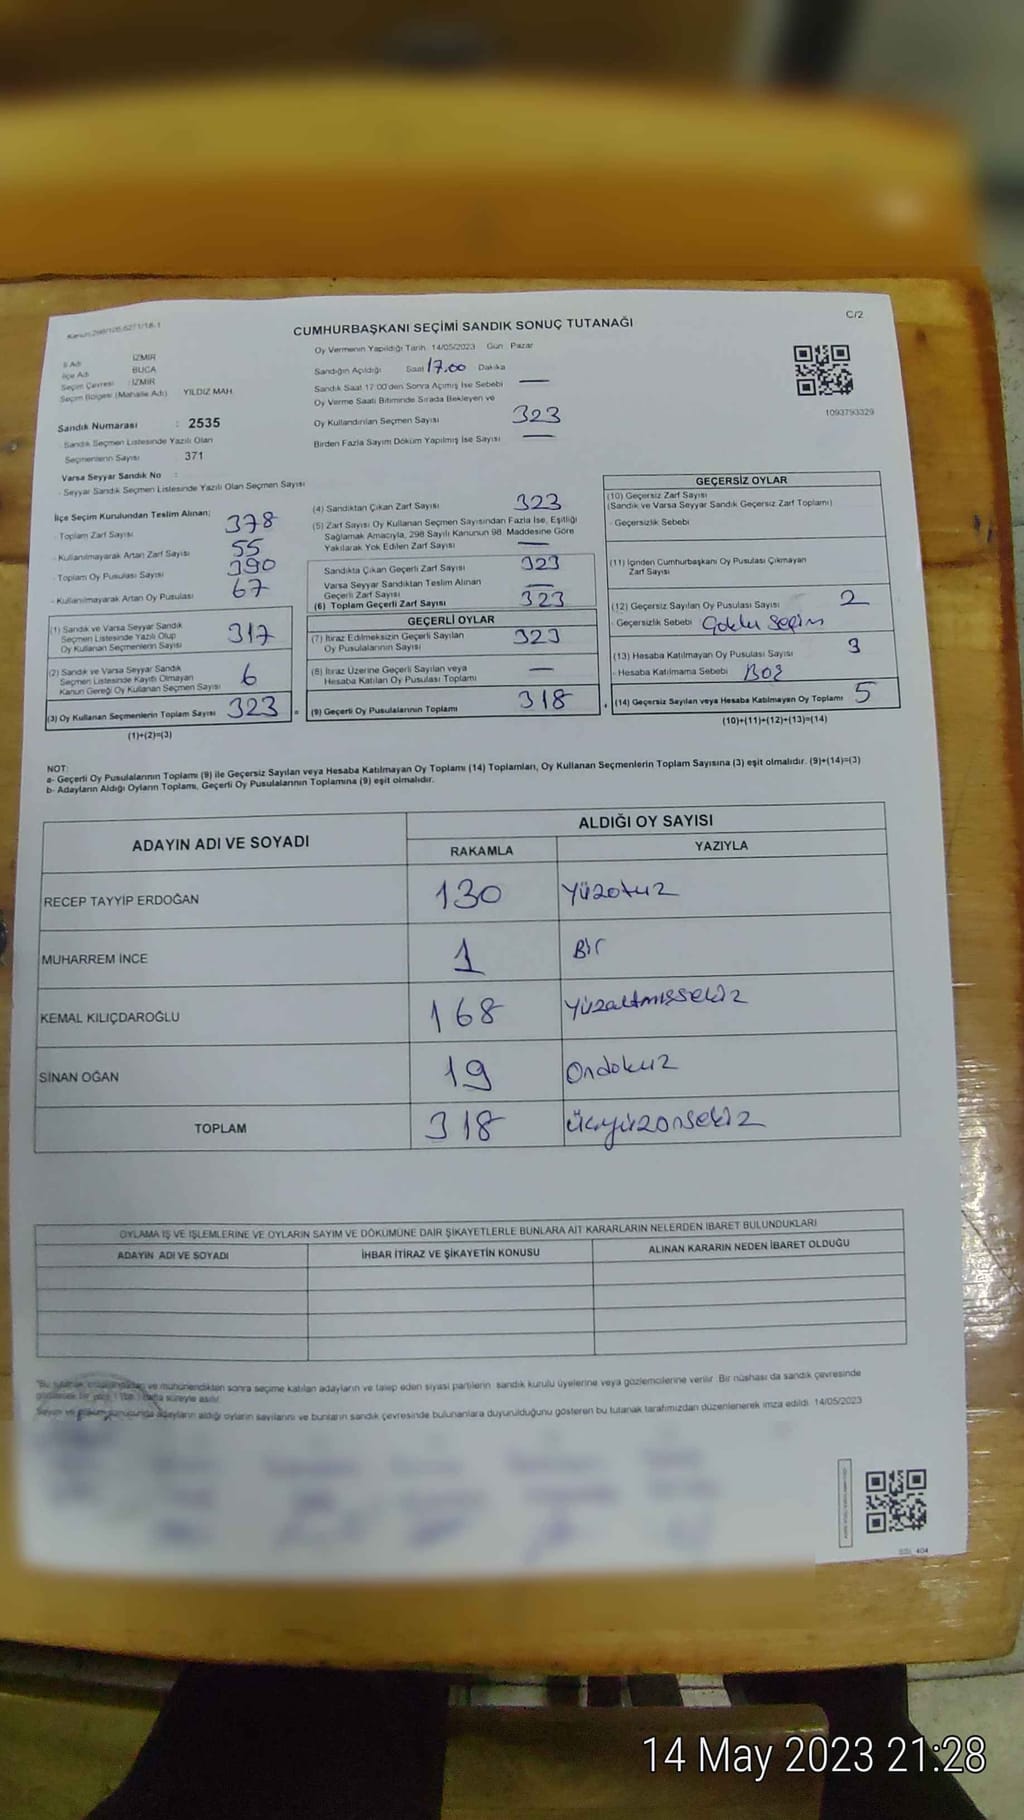 Kanun:298/105,6271/18-1
C/2
CUMHURBAŞKANI SEÇİMİ SANDIK SONUÇ TUTANAĞI
İl Adı : İZMİR
İlçe Adı : BUCA
Seçim Çevresi : İZMİR
Seçim Bölgesi (Mahalle Adı) YILDIZ MAH.
Sandık Numarası : 2535
Sandık Seçmen Listesinde Yazılı Olan
Seçmenlerin Sayısı 371
Varsa Seyyar Sandık No :
- Seyyar Sandık Seçmen Listesinde Yazılı Olan Seçmen Sayısı
Oy Vermenin Yapıldığı Tarih 14/05/2023 Gün Pazar
Sandığın Açıldığı Saat 17.00 Dakika
Sandık Saat 17:00'den Sonra Açılmış İse Sebebi —
Oy Verme Saati Bitiminde Sırada Bekleyen ve
Oy Kullandırılan Seçmen Sayısı 323
Birden Fazla Sayım Döküm Yapılmış İse Sayısı —
1093793329
İlçe Seçim Kurulundan Teslim Alınan;
- Toplam Zarf Sayısı 378
- Kullanılmayarak Artan Zarf Sayısı 55
- Toplam Oy Pusulası Sayısı 390
- Kullanılmayarak Artan Oy Pusulası 67
(1) Sandık ve Varsa Seyyar Sandık
Seçmen Listesinde Yazılı Olup
Oy Kullanan Seçmenlerin Sayısı 317
(2) Sandık ve Varsa Seyyar Sandık
Seçmen Listesinde Kayıtlı Olmayan
Kanun Gereği Oy Kullanan Seçmen Sayısı 6
(3) Oy Kullanan Seçmenlerin Toplam Sayısı 323 =
(1)+(2)=(3)
(4) Sandıktan Çıkan Zarf Sayısı 323
(5) Zarf Sayısı Oy Kullanan Seçmen Sayısından Fazla İse, Eşitliği
Sağlamak Amacıyla, 298 Sayılı Kanunun 98. Maddesine Göre
Yakılarak Yok Edilen Zarf Sayısı —
Sandıkta Çıkan Geçerli Zarf Sayısı 323
Varsa Seyyar Sandıktan Teslim Alınan
Geçerli Zarf Sayısı —
(6) Toplam Geçerli Zarf Sayısı 323
GEÇERLİ OYLAR
(7) İtiraz Edilmeksizin Geçerli Sayılan
Oy Pusulalarının Sayısı 323
(8) İtiraz Üzerine Geçerli Sayılan veya
Hesaba Katılan Oy Pusulası Toplamı —
(9) Geçerli Oy Pusulalarının Toplamı 318 +
GEÇERSİZ OYLAR
(10) Geçersiz Zarf Sayısı
(Sandık ve Varsa Seyyar Sandık Geçersiz Zarf Toplamı)
- Geçersizlik Sebebi
(11) İçinden Cumhurbaşkanı Oy Pusulası Çıkmayan
Zarf Sayısı
(12) Geçersiz Sayılan Oy Pusulası Sayısı 2
- Geçersizlik Sebebi Çoklu Seçim
(13) Hesaba Katılmayan Oy Pusulası Sayısı 3
- Hesaba Katılmama Sebebi Boş
(14) Geçersiz Sayılan veya Hesaba Katılmayan Oy Toplamı 5
(10)+(11)+(12)+(13)=(14)
NOT:
a- Geçerli Oy Pusulalarının Toplamı (9) ile Geçersiz Sayılan veya Hesaba Katılmayan Oy Toplamı (14) Toplamları, Oy Kullanan Seçmenlerin Toplam Sayısına (3) eşit olmalıdır. (9)+(14)=(3)
b- Adayların Aldığı Oyların Toplamı, Geçerli Oy Pusulalarının Toplamına (9) eşit olmalıdır.
ADAYIN ADI VE SOYADI
ALDIĞI OY SAYISI
RAKAMLA YAZIYLA
RECEP TAYYİP ERDOĞAN 130 Yüzotuz
MUHARREM İNCE 1 Bir
KEMAL KILIÇDAROĞLU 168 Yüzaltmışsekiz
SİNAN OĞAN 19 Ondokuz
TOPLAM 318 Üçyüzonsekiz
OYLAMA İŞ VE İŞLEMLERİNE VE OYLARIN SAYIM VE DÖKÜMÜNE DAİR ŞİKAYETLERLE BUNLARA AİT KARARLARIN NELERDEN İBARET BULUNDUKLARI
ADAYIN ADI VE SOYADI İHBAR İTİRAZ VE ŞİKAYETİN KONUSU ALINAN KARARIN NEDEN İBARET OLDUĞU
"Bu tutanak ve mühürlendikten sonra seçime katılan adayların ve talep eden siyasi partilerin sandık kurulu üyelerine veya gözlemcilerine verilir. Bir nüshası da sandık çevresinde
bir yere 1 hafta süreyle asılır.
Sayım ve döküm sonucunda adayların aldığı oyların sayılarını ve bunların sandık çevresinde bulunanlara duyurulduğunu gösteren bu tutanak tarafımızdan düzenlenerek imza edildi. 14/05/2023
404
14 May 2023 21:28